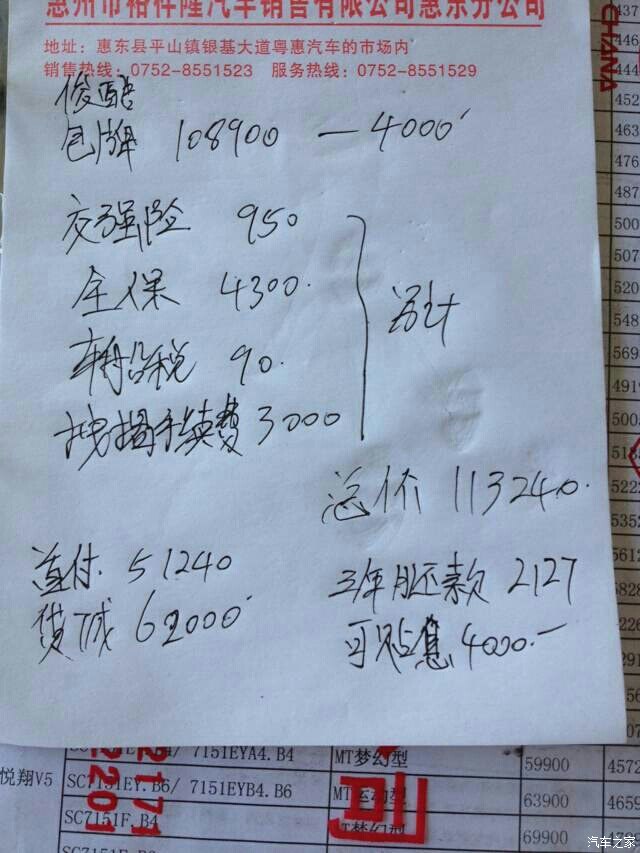 惠州市裕祥隆汽车销售有限公司惠东分公司
地址：惠东县平山镇银基大道粤惠汽车的市场内
销售热线：0752-8551523 服务热线：0752-8551529
俊酷
包牌 108900 — 4000
交强险 950
全保 4300.
车船税 90.
按揭手续费 3000
另计
总价 113240.
首付. 51240
贷成 62000
三年月还款 2127
可贴息 4000.—
CHANA
悦翔V5
7151EYA4.B4 MT梦幻型 59900 4572
SC7151EY.B6/ 7151EYB4.B6 MT运动型 63900 4659
SC7151F.B4 MT梦幻型 69900
2171
2201
汽车之家